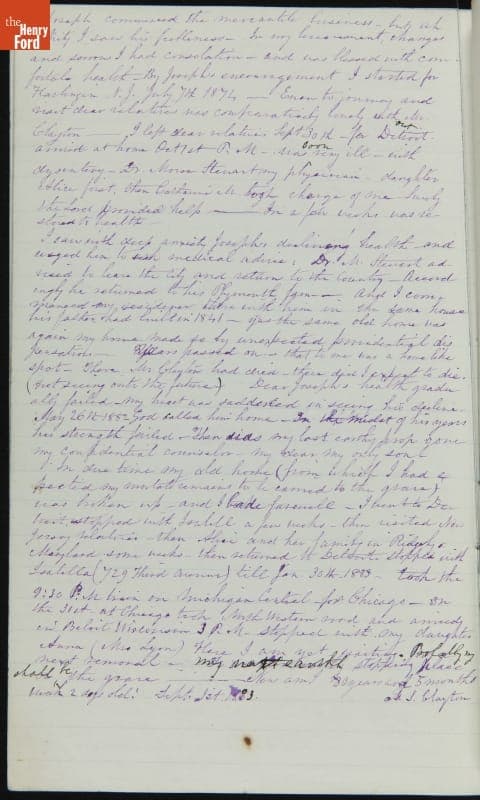 The Henry Ford
Joseph commenced the mercantile business - but
I saw his feebleness - In my bereavement, changes
and sorrow I had consolation - and was blessed with com-
fortable health - By Joseph's encouragement I started for
Harlingen N.J. July 7th 1874 - journey and
most dear relatives was comparatively lonely with
Clayton - I left dear relatives Sept 30th - for Detroit
arrived at home Oct 1st P.M. - was soon very ill - with
dysentery - Dr. Morse Stewart my physician - daughter
Alice first, then took charge of me -
provided help - In a few weeks was re-
stored to health -
I saw with deep anxiety Joseph's declining health - and
urged him to seek medical advice; Dr. M. Stewart ad-
vised to leave the city and return to the country - Accord
ingly he returned to his Plymouth farm - And I com-
menced my residence there with him in the same house
his father had built in 1841 - the same old home was
again my home made so by unexpected providential dis
pensations - Years passed on - that to me was a home like
spot - There Mr. Clayton had died - there did I expect to die -
(not seeing into the future) Dear Joseph's health gradu
ally failed - my heart was saddened in seeing his decline -
May 26th 1882 God called him home - In the midst of his years
his strength failed - then did my last earthly prop
my confidential counselor - my dear my only son -
In due time my old home (from which I had ex
pected my mortal remains to be carried to the grave)
was broken up - and I bade farewell - I went to De-
troit stopped with Isabella a few weeks - then visited New
Jersey relatives - then Alice and her family in Ridgely
Maryland some weeks - then returned to Detroit stopped with
Isabella (729 Third Avenue) till Jan 30th 1883 - took the
9:30 P.M. train on Michigan Central - for Chicago - on
the 31st at Chicago took North Western road and arrived
in Beloit Wisconsin 3 P.M. Stopped with my daughter
Anna (Mrs Lyon) Here I am yet waiting - Probably my
next removal - my next earthly stopping place
shall be the grave - Now am 80 years and 5 months
1 week 2 days old! Sept. 1st 1883. S. Clayton